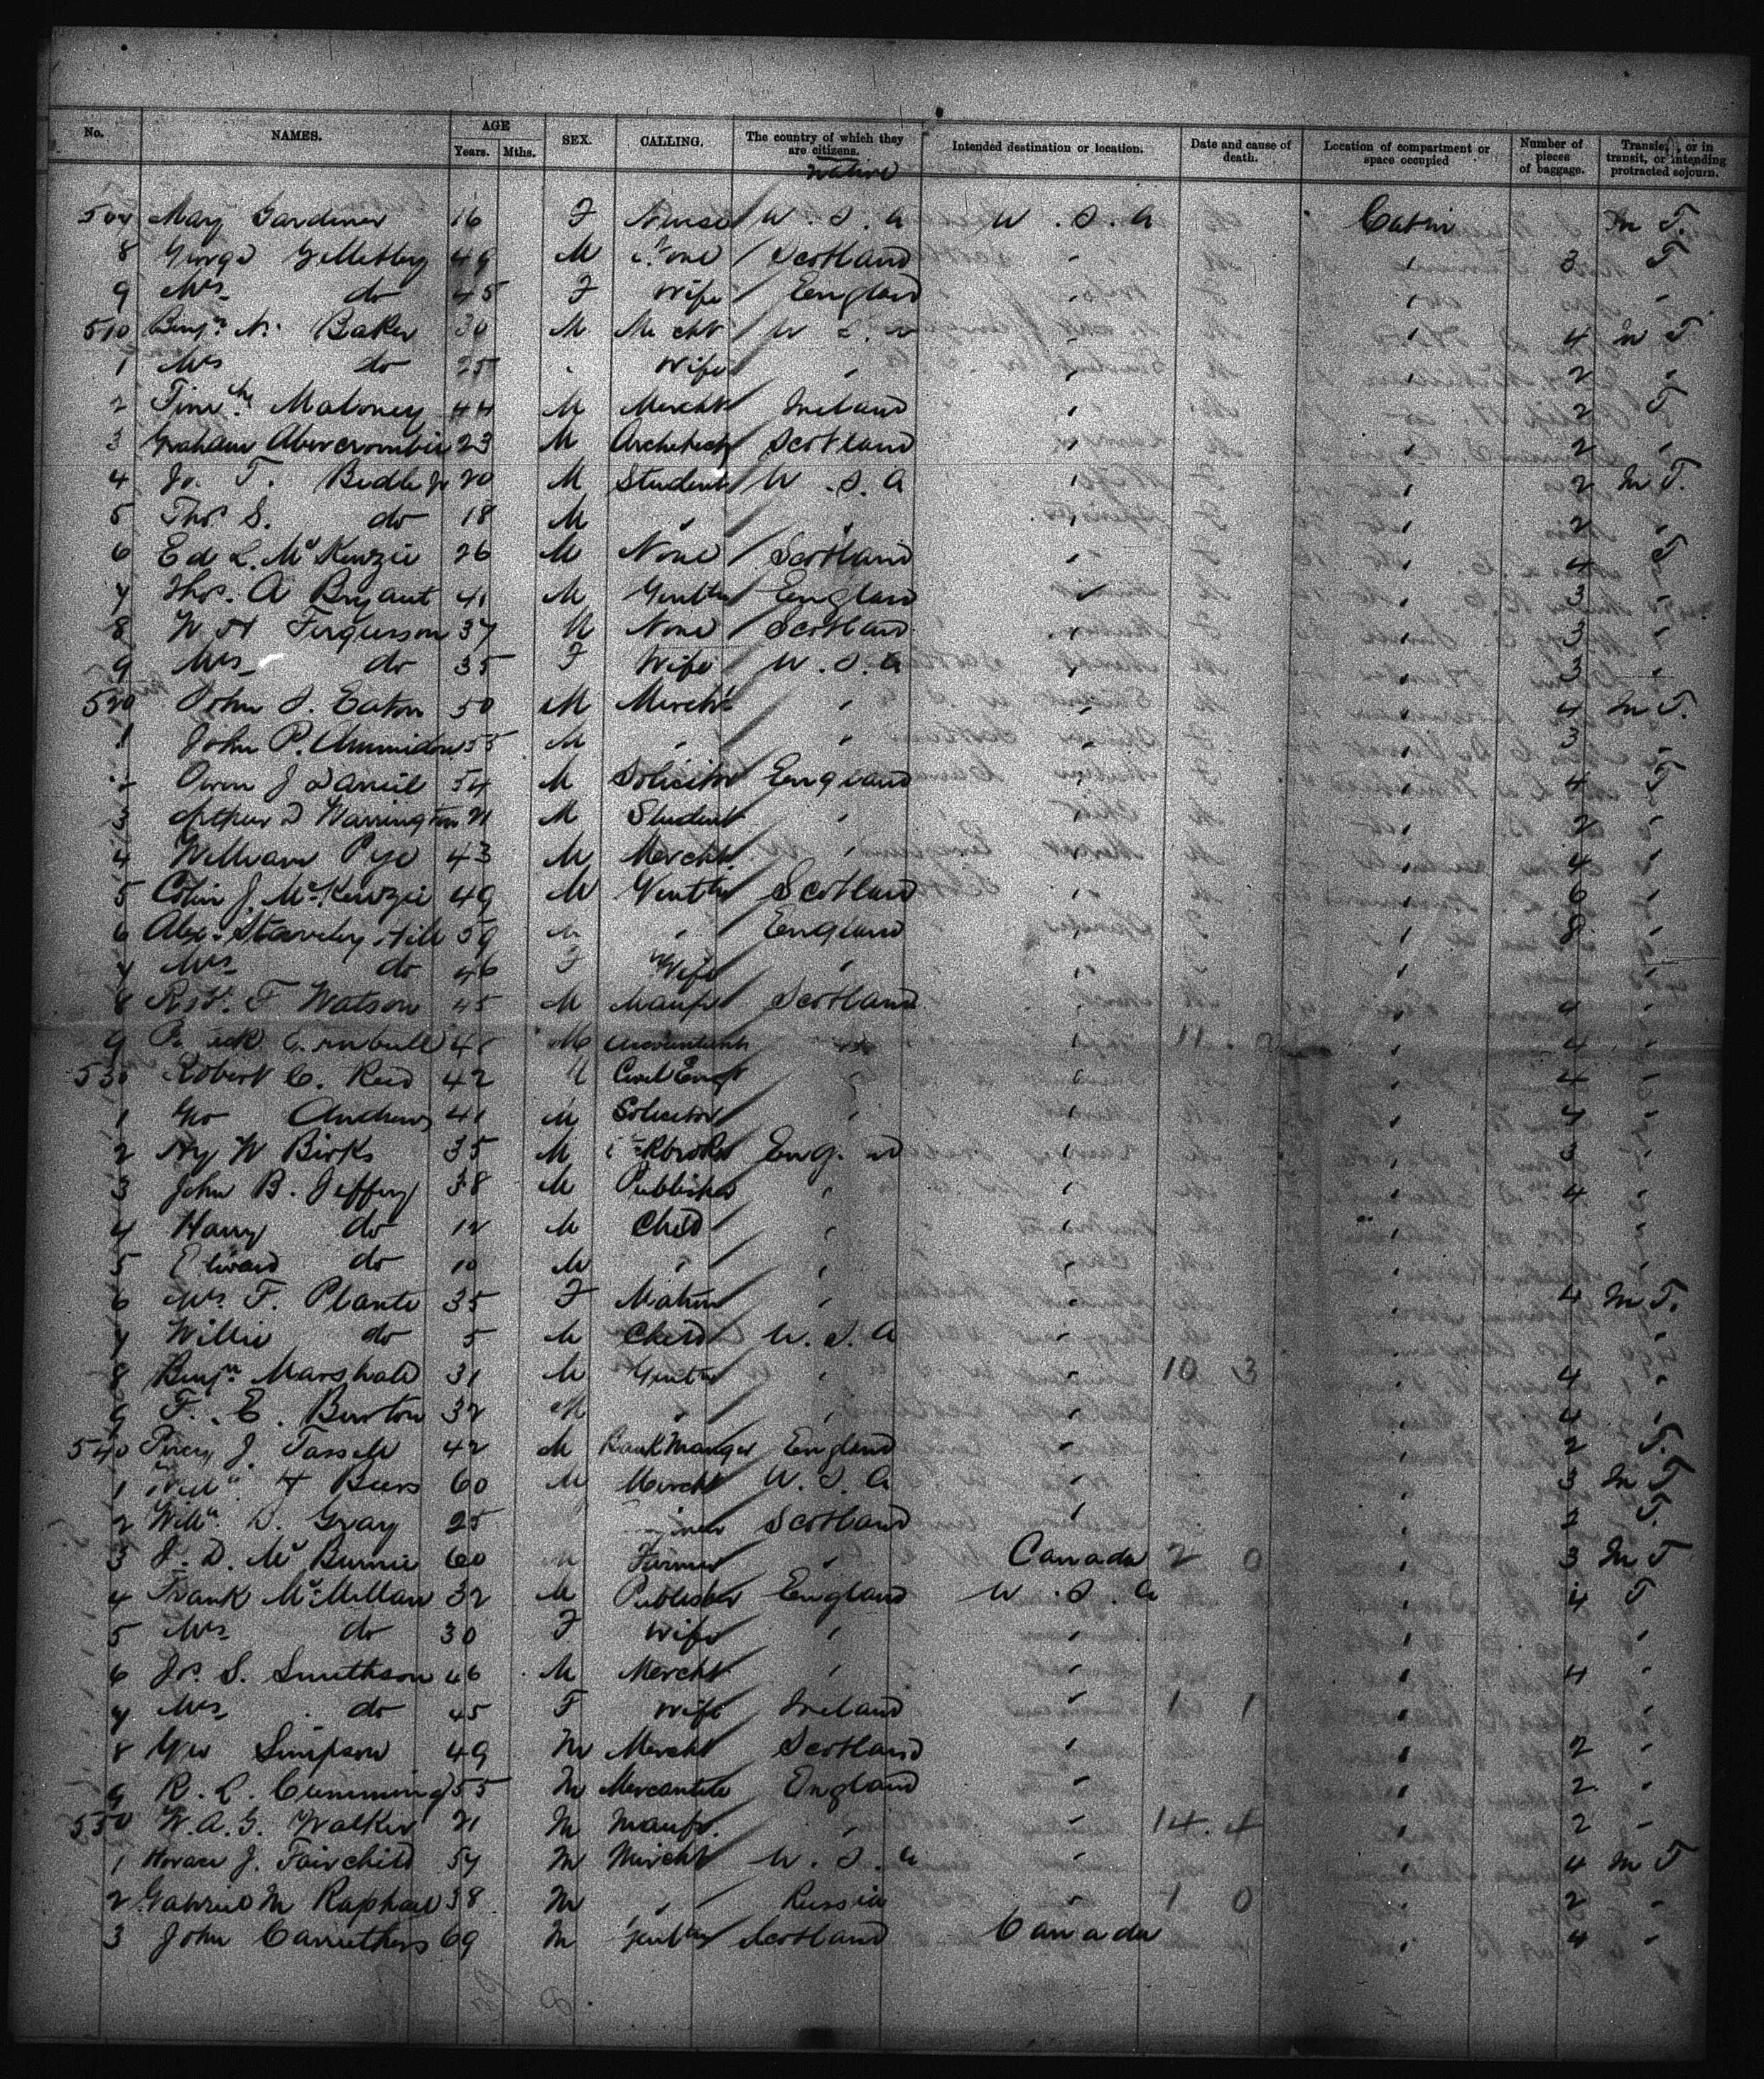 No. NAMES. AGE Years. Mths. SEX. CALLING. The country of which they are citizens. Intended destination or location. Date and cause of death. Location of compartment or space occupied Number of pieces of baggage. Transient, or in transit, or intending protracted sojourn.
Native
507 May Gardiner 16 F Nurse U.S.A U.S.A Cabin In T.
8 George 49 M None Scotland " " 3 T
9 Mrs do 45 F Wife England " " "
510 Benjn N. Baker 30 M Mcht U S " " 4 In T
1 Mrs do 25 " Wife " " " 2 "
2 Timthy Maloney 44 M Mercht Ireland " " 2 T
3 Graham Abercrombie 23 M Architect Scotland " " 2 "
4 Jo. T. 20 M Student U.S.A " " 2 In T.
5 Thos S. do 18 M " " " " 2 "
6 Ed L. McKenzie 26 M None Scotland " " 4 T
7 Thos. A Bryant 41 M Gentln England " " 3 "
8 W H Fergusson 37 M None Scotland " " 3 "
9 Mrs do 35 F Wife U.S.A " " 3 "
520 John J. Eaton 50 M Mercht " " " 4 In T.
1 John P. 55 M " " " " 3 "
2 Owen J Daniel 54 M Solicitor England " " 4 T
3 Arthur D Warrington 21 M Student " " " 2 "
4 William Pye 43 M Mercht " " " 4 "
5 Colin J. McKenzie 49 M Gentln Scotland " " 6 "
6 Alex. Staveley Hill 59 M " England " " 8 "
7 Mrs do 46 F Wife " " " "
8 Robt. F Watson 45 M Manufr Scotland " " 4 "
9 M Accountant " " 11 " 4 "
530 Robert C. Reid 42 M Civil Engr " " " 4 "
1 Geo Andrews 41 M Solicitor " " " 4 "
2 Hy W Birks 35 M Eng. " " 3 "
3 John B. Jeffery 38 M Publisher " " " 4 "
4 Harry do 12 M Child " " " "
5 Edward do 10 M " " " "
6 Mrs. F. Plante 35 F Matron " " " 4 In T.
7 Willie do 5 M Child U.S.A " " "
8 Benjn Marshall 31 M Gentn " " 10 3 " 4 "
9 F. E. Burton 32 M " " " " 4 "
540 Percy J. Tassell 42 M Bank Manger England " " 2 T.
1 H Beers 60 M Mercht U.S.A " " 3 In T
2 Willm D. Gray 25 Scotland " " 2 T.
3 J. D. McBurnie 60 M Farmer " Canada 2 0 " 3 In T
4 Frank McMillan 32 M Publisher England U.S.A " 4 T
5 Mrs do 30 F Wife " " " "
6 Js. S. Smithson 46 M Mercht " " " 4 "
7 Mrs do 45 F Wife Ireland " 1 1 " "
8 Geo Simpson 49 M Mercht Scotland " " 2 "
9 R. L. Cumming 55 M Mercantile England " " 2 "
550 W.A.G. Walker 21 M Manfr. " " 14. 4 " 2 "
1 Horace J. Fairchild 54 M Mercht U.S.A " " 4 In T
2 Gabriel M Raphael 38 M " Russia " 1 0 " 2 "
3 John Carruthers 69 M Gentln Scotland Canada " 4 "